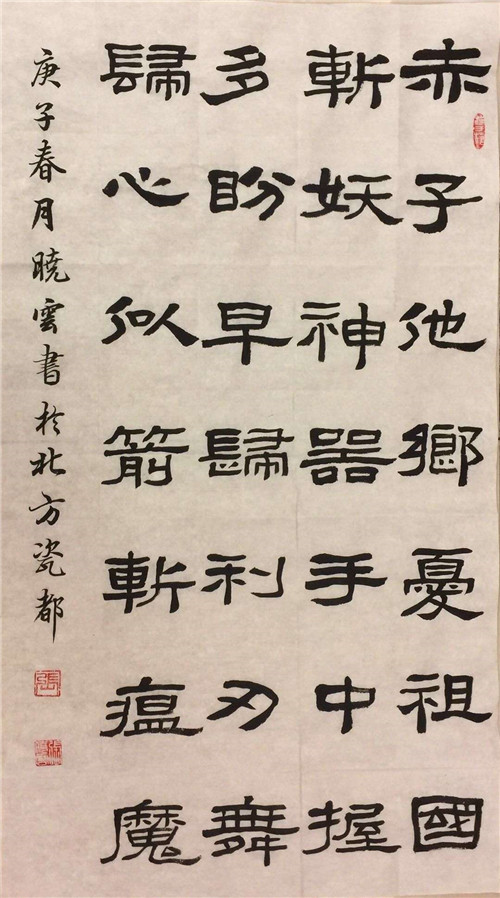 赤子他鄉憂祖國
斬妖神器手中握
多盼早歸利刃舞
歸心似箭斬瘟魔
庚子春月曉雲書於北方瓷都